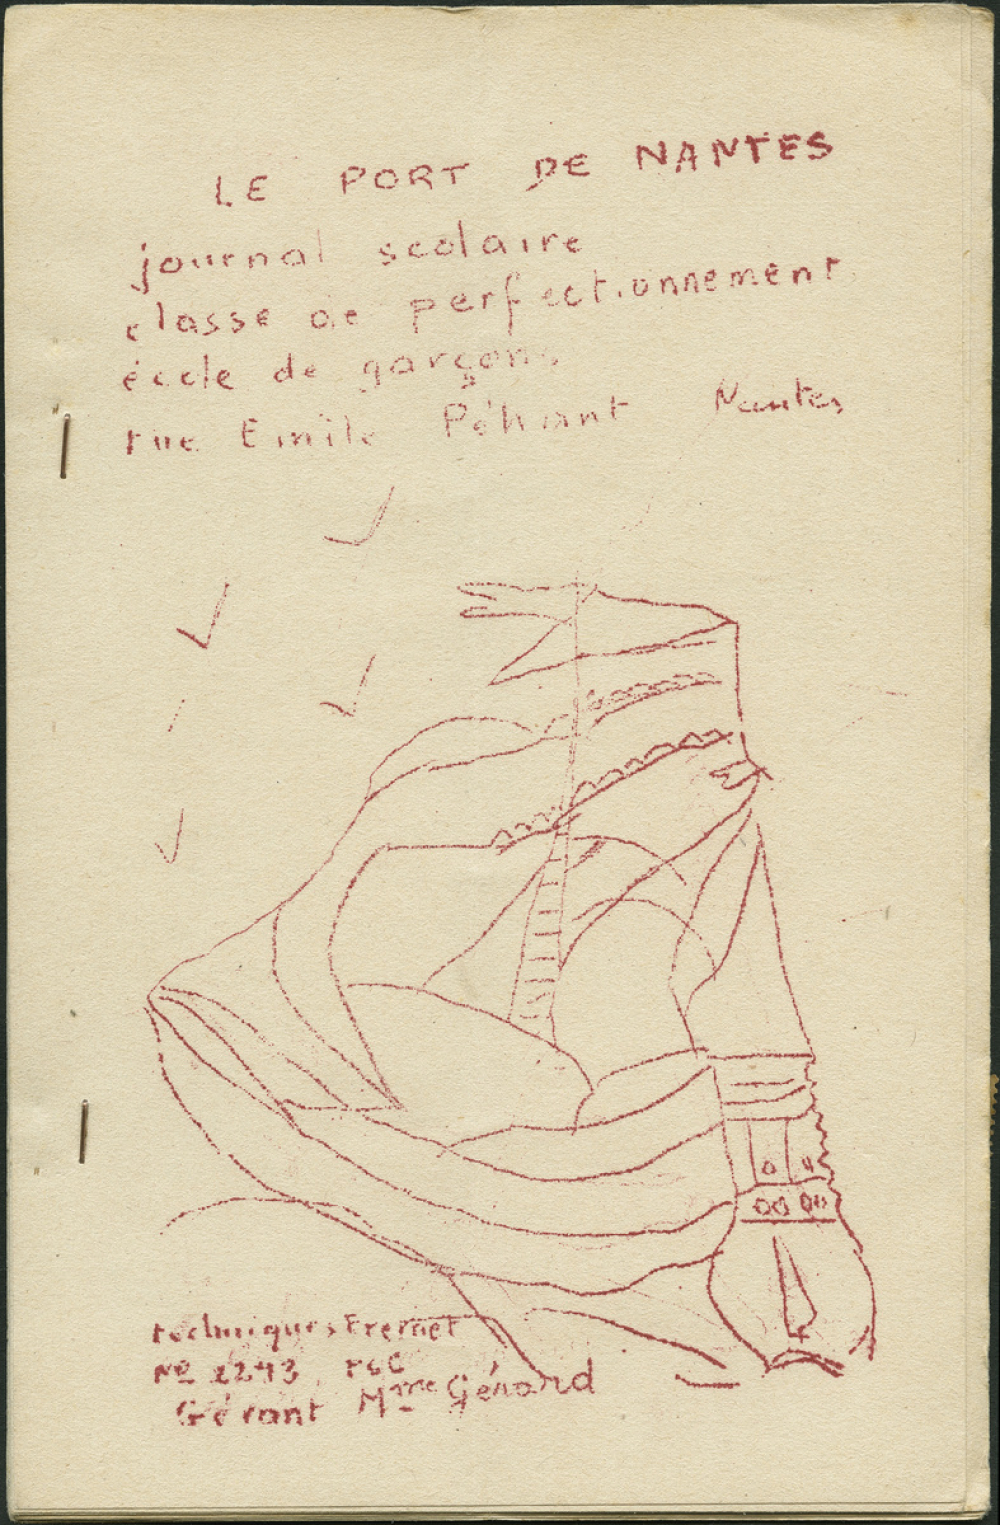 LE PORT DE NANTES
journal scolaire
classe de perfectionnement
école de garçons
rue Emile Péhant Nantes
techniques Freinet
No 1243 PSC
Gérant Mme Gérard